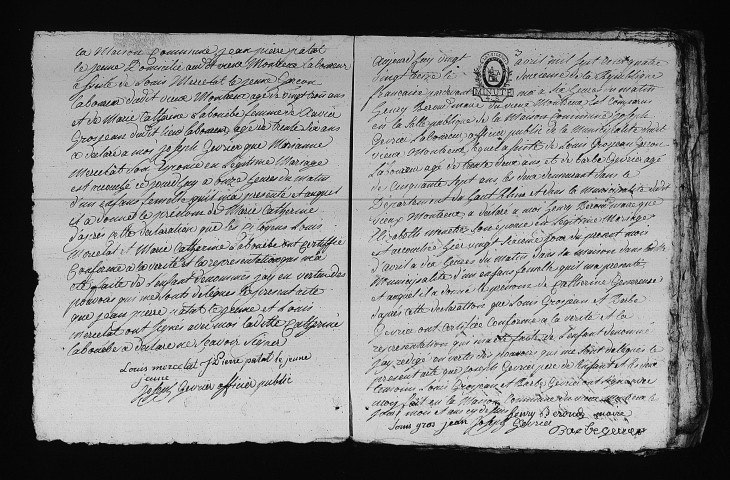 la Maison Commune jean pierre patat
le jeune Domicilié audit vieux Montreux Laboureur
assisté de Louis Mercelat le jeune Garçon
Laboureur dudit vieux Montreux agé de vingt trois ans
et de Marie Catherine femme de
du dit lieu Laboureur agée de trente six ans
a déclaré a moy joseph Gevrier que Marianne
Mercelat son Epouse en Légitime Mariage
est accouché ce jourdhuy a onze heures du matin
d'un enfans femelle quil m'a présenté et auquel
il a donné le prénoms de Marie Catherine
d'après cette declaration que les Citoyens Louis
Mercelat et Marie Catherine ont Certiffiée
Conforme a la vérité et la représentation qui m'a
été faite de l'enfant denommés jay en vertu des
pouvoirs qui me sont délégués le présent acte
que jean pierre patat le jeune et Louis
mercelat ont signés avec moy laditte Catherine
a déclaré ne savoir signer
Louis mercelat J Pierre patat le jeune
jeune
joseph Gevrier officier public
MINUTE
aujourd'huy vingt 3 avril mil sept cent quatre
vingt treize le de la République
française pardevant moi a dix heures du matin
henry maire du vieux Montreux Est Comparu
en la salle publique de la Maison Commune joseph
Gevrier Laboureur officier public de la Municipalité dudit
vieux Montreux lequel assisté de Louis Grosjean Garçon
Laboureur agé de trente deux ans et de barbe Gevrier agé
de Cinquante sept ans les deux demeurant dans le
Departement du haut Rhin et dans la municipalité dudit
vieux Montreux a déclaré a moy henry maire que
Elisabeth son epouse en Légitime Mariage
est accouché hier vingt jour du present mois
d'avril a dix heures du matin dans la maison dans la dite
Municipalité d'un enfans femelle quil m'a présenté
et auquel il a donné le prénom de Catherine
d'après cette declaration que Louis Grosjean et Barbe
Gevrier ont Certiffiée Conforme a la vérité et la
representation qui m'a été faite de l'enfant denommé
jay redigé en vertu des pouvoirs qui me sont délégués le
present acte que joseph Gevrier père de l'enfant et
temoin Louis Grosjean et barbe Gevrier ont signé avec
moy fait en la Maison Commune du vieux Montreux le
jour mois et an cy dessus henry maire
Louis gros jean joseph Gevrier
Barbe gevrier